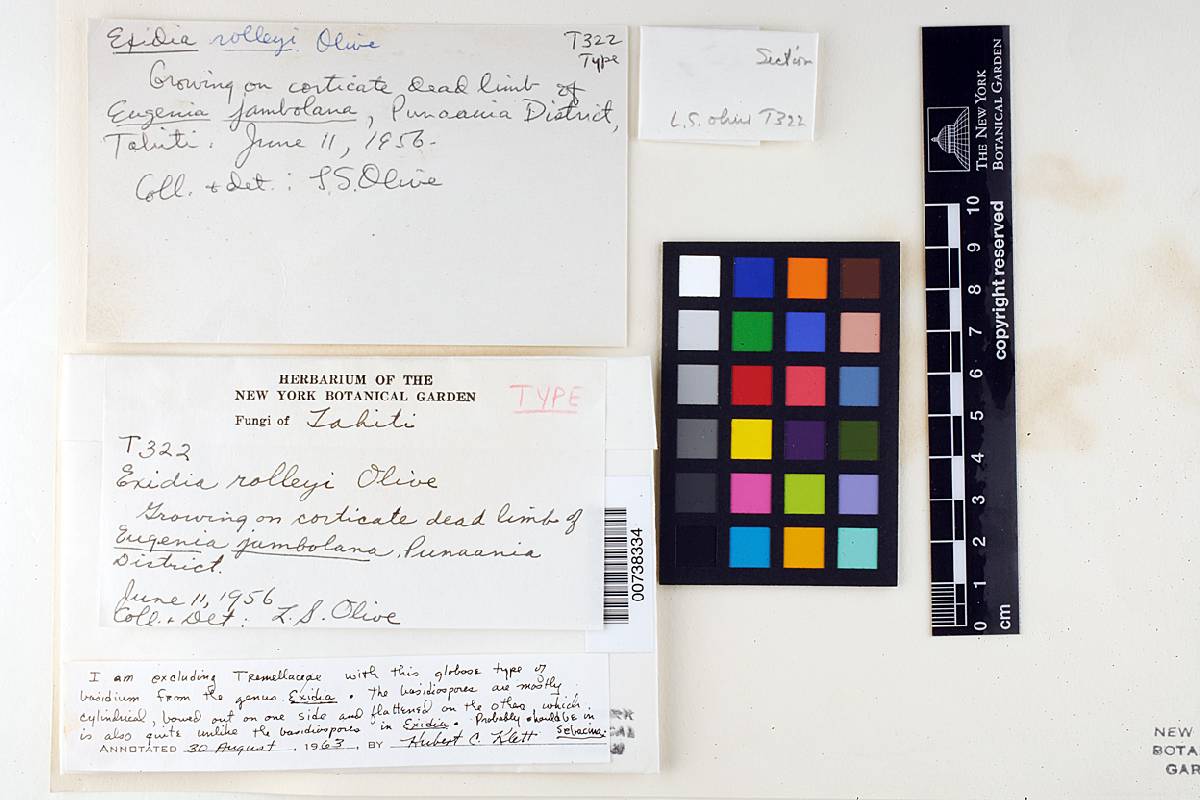 Exidia rolleyi Olive
T322
Type
Growing on corticate dead limb of
Eugenia jambolana, Punaania District,
Tahiti. June 11, 1956.
Coll. & det.: L.S. Olive
Section
L.S. Olive T322
HERBARIUM OF THE
NEW YORK BOTANICAL GARDEN
TYPE
Fungi of Tahiti
T322
Exidia rolleyi Olive
Growing on corticate dead limb of
Eugenia jambolana, Punaania
District.
June 11, 1956
Coll. & Det: L.S. Olive
00738334
I am excluding Tremellaceae with this globose type of
basidium from the genus Exidia. The basidiospores are mostly
cylindrical, bowed out on one side and flattened on the other which
is also quite unlike the basidiospores in Exidia. Probably should be in
Sebacina.
ANNOTATED 30 August, 1963, BY Hubert C. Klett
THE NEW YORK
BOTANICAL GARDEN
copyright reserved
10 9 8 7 6 5 4 3 2 1 0
cm
NEW
BOTA
GAR